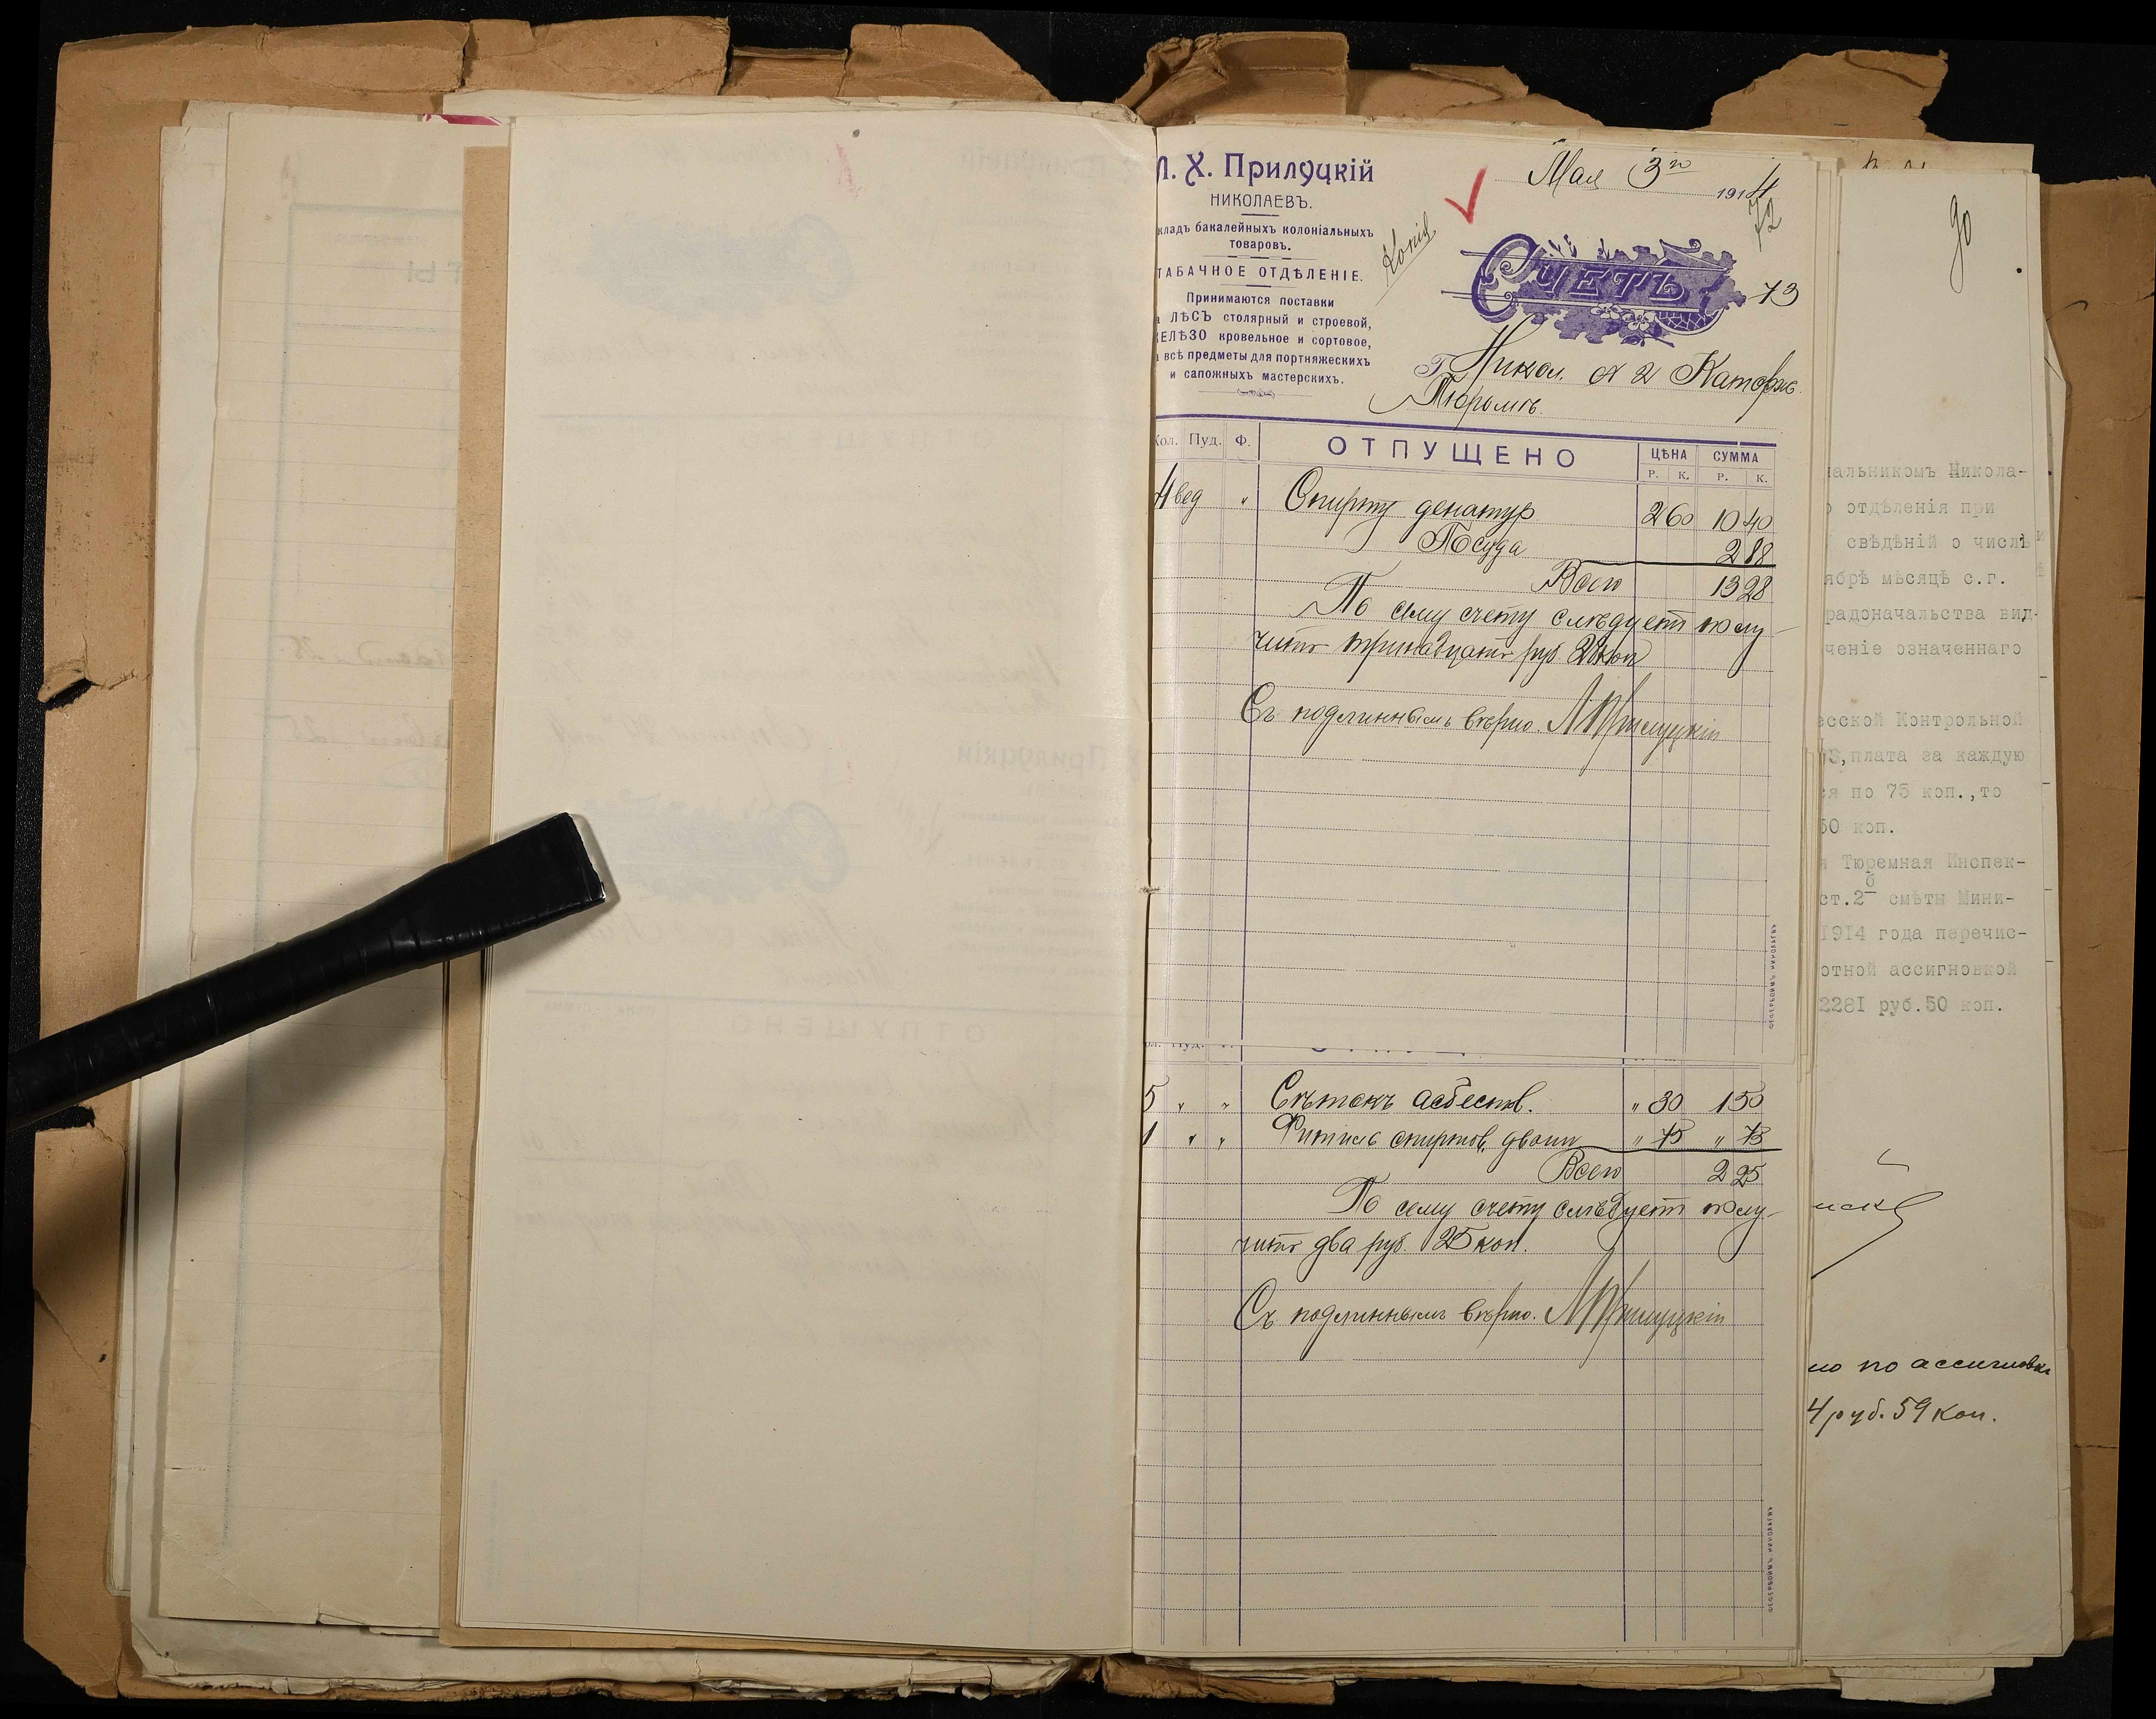 Л. Х. Прилуцкій
НИКОЛАЕВЪ.
кладъ бакалейныхъ колоніальныхъ
товаровъ.
ТАБАЧНОЕ ОТДѢЛЕНІЕ.
Принимаются поставки
а ЛѢСЪ столярный и строевой,
ЖЕЛѢЗО кровельное и сортовое,
всѣ предметы для портняжескихъ
и сапожныхъ мастерскихъ.
Мая 3го 1914
72
Копія
СЧЕТЪ
73
Г. Никол. 2 Каторж.
Тюрьмѣ.
Кол. Пуд. Ф. ОТПУЩЕНО ЦѢНА СУММА
Р. К. Р. К.
4 вед " Спирту денатур 2 60 10 40
Посуда 2 88
Всего 13 28
По сему счету слѣдуетъ полу-
чить тринадцать руб 28 коп
Съ подлиннымъ вѣрно. ЛПрилуцкій
5 " " Сѣтокъ асбестов. " 30 1 50
1 " " Фитиль спиртов. двойн " 75 " 75
Всего 2 25
По сему счету слѣдуетъ полу-
чить два руб. 25 коп.
Съ подлиннымъ вѣрно. ЛПрилуцкій
90
чальникомъ Никола-
о отдѣленія при
свѣдѣній о числѣ
ябрѣ мѣсяцѣ с.г.
радоначальства вид-
ченіе означеннаго
есской Контрольной
3, плата за каждую
ся по 75 коп., то
50 коп.
я Тюремная Инспек-
ст.2 б смѣты Мини-
1914 года перечис-
отной ассигновкой
2281 руб.50 коп.
но по ассигновк
4 руб. 59 коп.